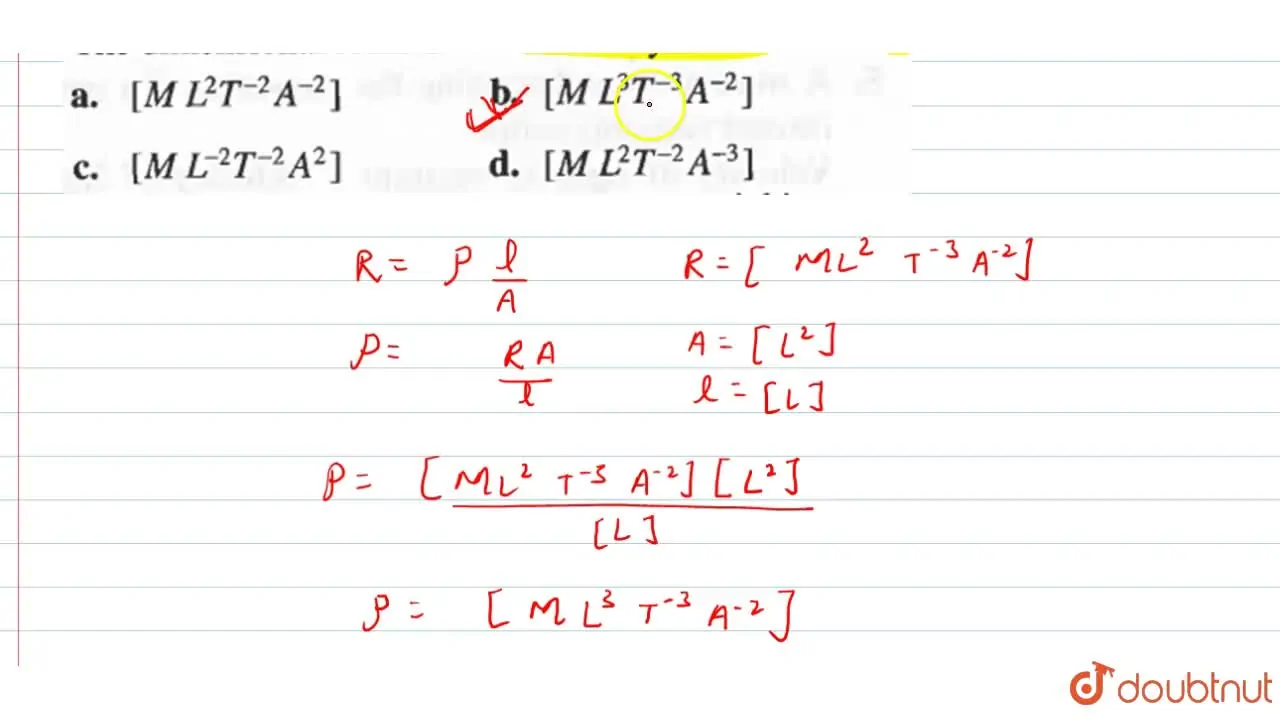 a. [M L²T⁻²A⁻²] b. [M L³T⁻³A⁻²]
c. [M L⁻²T⁻²A²] d. [M L²T⁻²A⁻³]
R = ρ l/A R = [ML² T⁻³ A⁻²]
ρ = RA/l A = [L²]
l = [L]
ρ = [ML² T⁻³ A⁻²][L²]/[L]
ρ = [M L³ T⁻³ A⁻²]
doubtnut